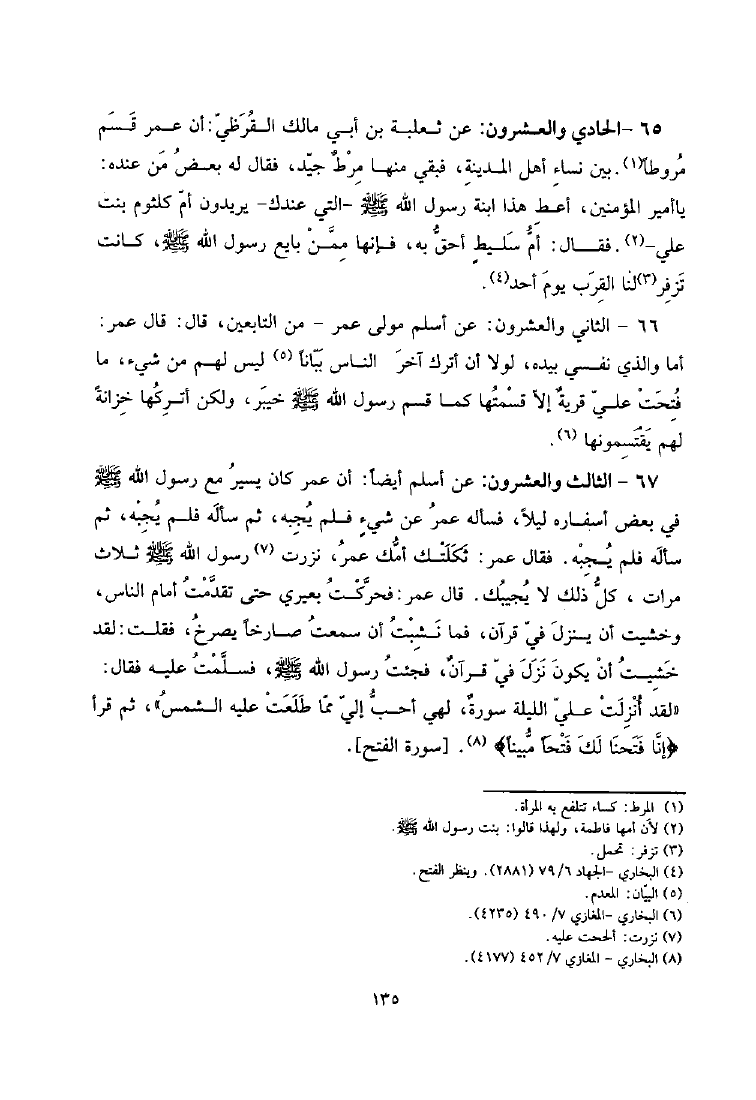 ٦٥ -الحادي والعشرون: عن ثعلبة بن أبي مالك القُرَظيّ: أن عمر قَسَم
مُروطاً(١). بين نساءِ أهل المدينةِ، فبقي منها مِرْطٌ جيّد، فقال له بعضُ مَن عنده:
ياأمير المؤمنين، أعطِ هذا ابنة رسول الله ﷺ -التي عندك- يريدون أمّ كلثوم بنت
علي-(٢). فقال: أمُّ سَليطٍ أحقُّ به، فإنها ممَّنْ بايع رسول الله ﷺ، كانت
تَزفِر(٣)لنا القِرَب يومَ أحد(٤).
٦٦ - الثاني والعشرون: عن أسلم مولى عمر - من التابعين، قال: قال عمر:
أما والذي نفسي بيده، لولا أن أترك آخرَ الناس بَبّاناً (٥) ليس لهم من شيء، ما
فُتحَتْ عليّ قريةٌ إلاّ قسْمتُها كما قسم رسول الله ﷺ خيبَر، ولكن أتركُها خِزانةً
لهم يَقْتَسمونها (٦).
٦٧ - الثالث والعشرون: عن أسلم أيضاً: أن عمر كان يسيرُ مع رسول الله ﷺ
في بعض أسفاره ليلاً، فسأله عمرُ عن شيءٍ فلم يُجبه، ثم سألَه فلم يُجبْه، ثم
سألَه فلم يُجبْه. فقال عمر: ثَكَلَتْك أمُّك عمرُ، نزرت (٧) رسول الله ﷺ ثلاث
مرات ، كلُّ ذلك لا يُجيبُك. قال عمر: فحرَّكْتُ بعيري حتى تقدَّمْتُ أمام الناس،
وخشيت أن ينزلَ فيّ قرآن، فما نَشِبْتُ أن سمعتُ صارخاً يصرخُ، فقلت: لقد
خَشيتُ أنْ يكونَ نَزَلَ فيّ قرآنٌ، فجئتُ رسول الله ﷺ، فسلَّمْتُ عليه فقال:
«لقد أُنْزِلَتْ عليّ الليلة سورةٌ، لهي أحبُّ إليّ ممّا طَلَعَتْ عليه الشمسُ»، ثم قرأ
﴿إنَّا فَتَحنَا لَكَ فَتْحاً مُّبيناً﴾ (٨). [سورة الفتح].
(١) المرط: كساء تتلفع به المرأة.
(٢) لأن أمها فاطمة، ولهذا قالوا: بنت رسول الله ﷺ.
(٣) تزفر: تحمل.
(٤) البخاري -الجهاد ٧٩/٦ (٢٨٨١). وينظر الفتح.
(٥) البيّان: المعدم.
(٦) البخاري -المغازي ٤٩٠/٧ (٤٢٣٥).
(٧) نزرت: ألححت عليه.
(٨) البخاري - المغازي ٤٥٢/٧ (٤١٧٧).
١٣٥